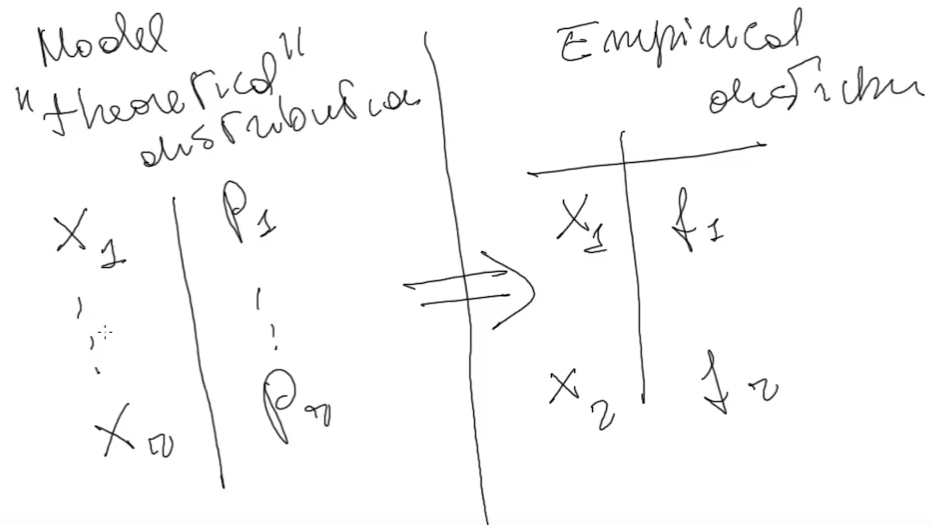 Model
"theoretical"
distribution
x1 p1
⋮ ⋮
xn pn
⇒
Empirical
distribu
x1 f1
x2 f2